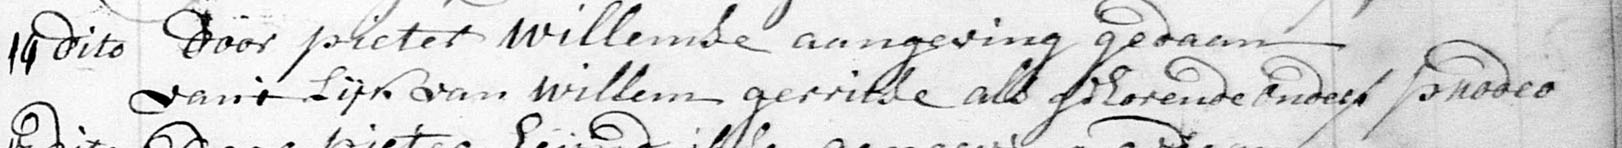 14 dito door pieter Willemse aangeving gedaan
van't Lijk van Willem gerritse als gehorende onder pro deo
dito Door pieter